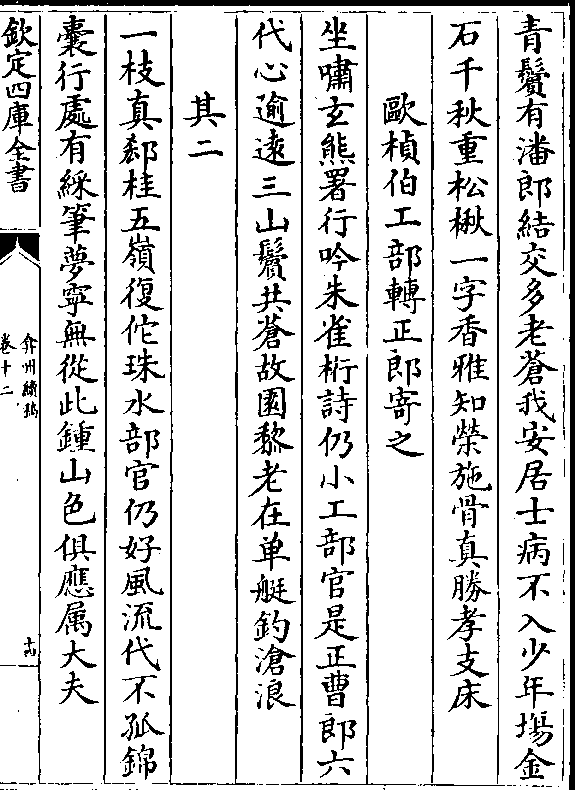 青鬢有潘郎結交多老蒼我安居士病不入少年塲金
石千秋重松楸一字香雅知榮施骨真勝孝支床
歐楨伯工部轉正郎寄之
坐嘯玄熊署行吟朱雀桁詩仍小工部官是正曹郎六
代心逾遠三山鬢共蒼故園黎老在单艇釣滄浪
其二
一枝真郄桂五嶺復佗珠水部官仍好風流代不孤錦
囊行處有綵筆夢寧無從此鍾山色俱應属大夫
欽定四庫全書
弇州續稿
卷十二
十四